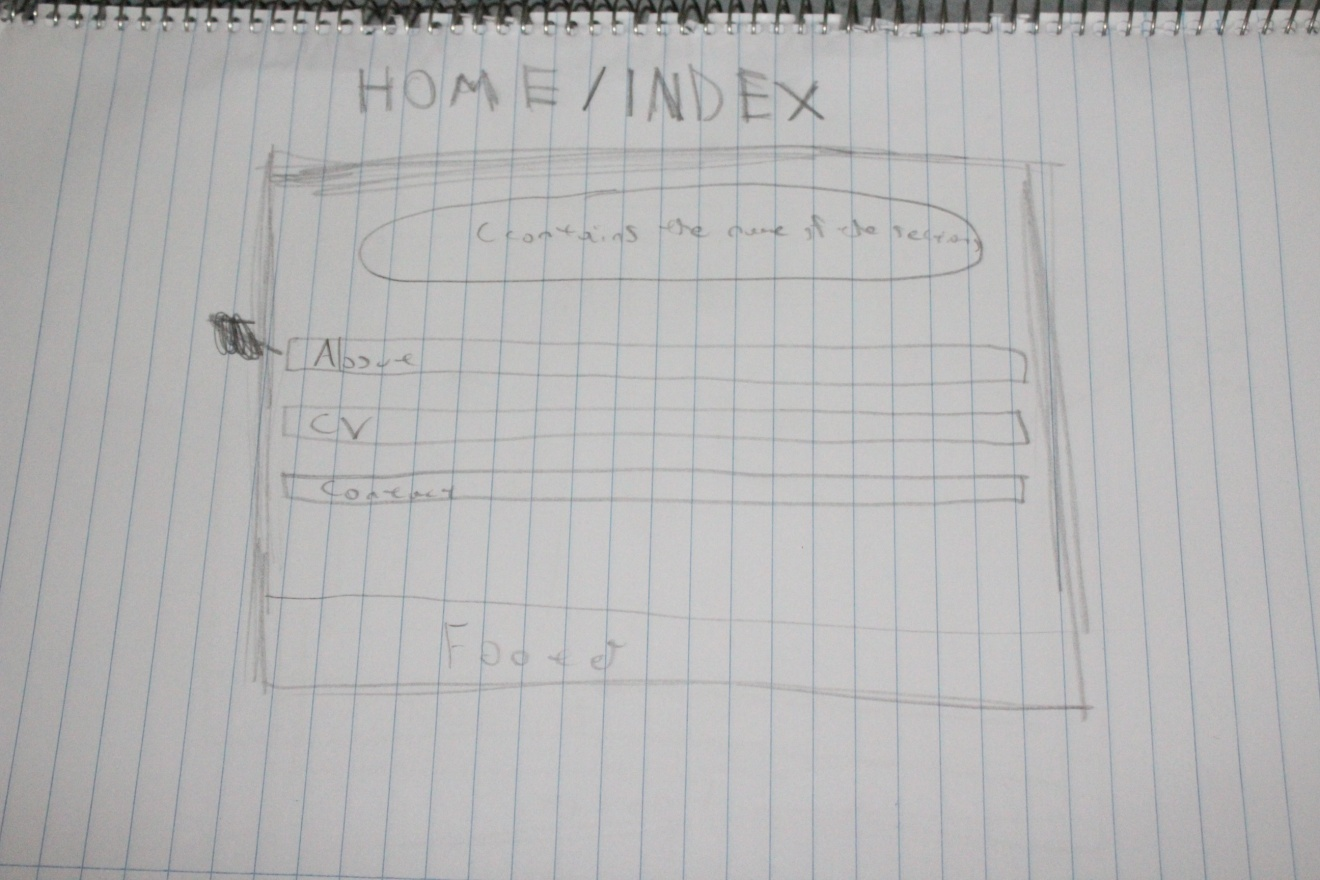 HOME/INDEX
(contains the name of the section)
About
CV
Contact
Footer